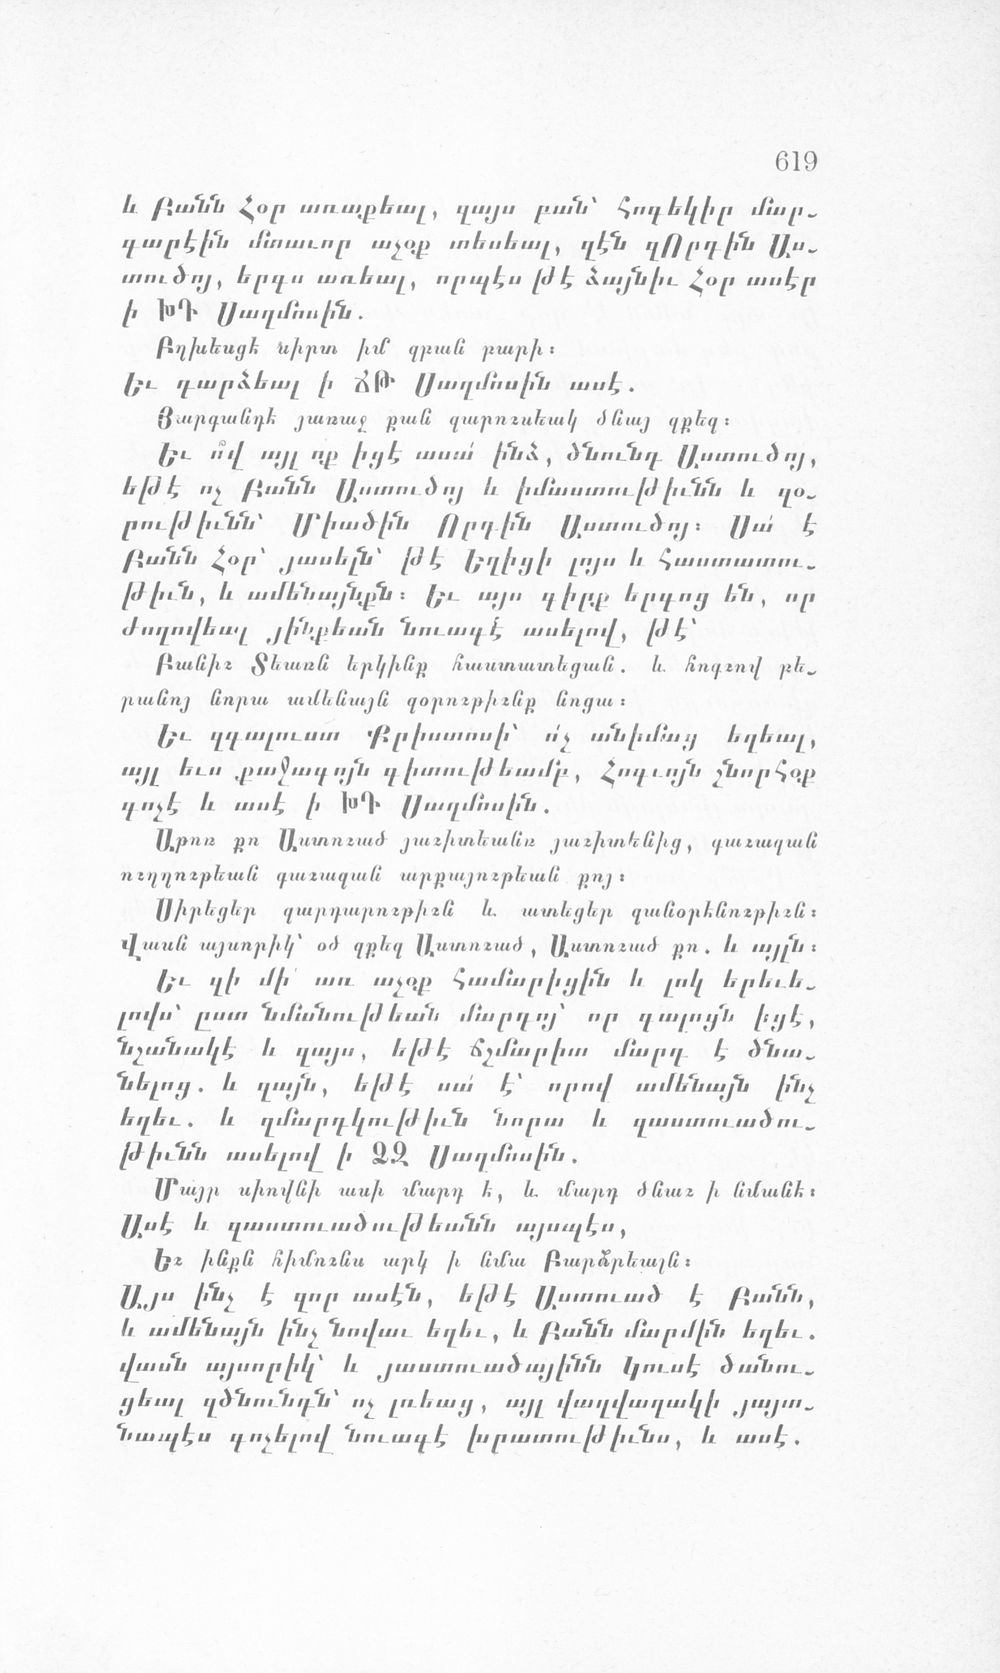 619
և Բանն Հօր առաքեալ, զայս բան՝ հոգեկիր մար֊
գարէին մտաւոր աչօք տեսեալ, զէն զՈրդին Աս֊
տուծոյ, երգս առեալ, որպէս թէ ձայնիւ Հօր ասէր
ի ԽԴ Սաղմոսին.
Բղխեսցէ սիրտ իմ զբան բարի։
Եւ դարձեալ ի ՃԹ Սաղմոսին ասէ.
Յարգանդէ յառաջ քան զարուսեակ ծնայ զքեզ։
Եւ ո՞վ այլ ոք իցէ ասա՛ ինձ, ծնունդ Աստուծոյ,
եթէ ոչ Բանն Աստուծոյ և իմաստութիւնն և զօ֊
րութիւնն՝ Միածին Որդին Աստուծոյ։ Սա՛ է
Բանն Հօր՝ յասելն՝ թէ Եղիցի լոյս և հաստատու֊
թիւն, և ամենայնքն։ Եւ այս գիրք երգոց են, որ
ժողովեալ յինքեան նուագէ՛ ասելով, թէ՝
Բանիւ Տեառն երկինք հաստատեցան. և հոգւով բե֊
րանոյ նորա ամենայն զօրութիւնք նոցա։
Եւ զգալուստ Քրիստոսի՝ ո՛չ անիմաց եղեալ,
այլ ևս քաջագոյն գիտութեամբ, Հոգւոյն շնորհօք
գոչէ և ասէ ի ԽԴ Սաղմոսին.
Աթոռ քո Աստուած յաւիտեանս յաւիտենից, գաւազան
ուղղութեան գաւազան արքայութեան քոյ։
Սիրեցեր զարդարութիւն և ատեցեր զանօրէնութիւն։
Վասն այսորիկ՝ օծ զքեզ Աստուած, Աստուած քո. և այլն։
Եւ զի մի՛ առ աչօք համարիցին և լոկ երեւե֊
լովս՝ ըստ նմանութեան մարդոյ՝ որ գալոցն իցէ,
նշանակէ և զայս, եթէ ճշմարիտ մարդ է ծնա֊
նելոց. և զայն, եթէ սա՛ է՝ որով ամենայն ինչ
եղեւ. և զմարդկութիւն նորա և զաստուածու֊
թիւնն ասելով ի ՁԶ Սաղմոսին.
Մայր սիովնի ասի մարդ է, և մարդ ծնաւ ի նմանէ։
Ասէ և զաստուածութեանն այսպէս,
Եւ ինքն հիմունս արկ ի նմա Բարձրեալն։
Այս ինչ է զոր ասէն, եթէ Աստուած է Բանն,
և ամենայն ինչ նովաւ եղեւ, և Բանն մարմին եղեւ.
վասն այսորիկ՝ և յաստուածայինն Կուսէ ծանու֊
ցեալ զծնունդն՝ ոչ լռեաց, այլ վաղվաղակի յայտ֊
նապէս գոչելով նուագէ խրատութիւնս, և ասէ.